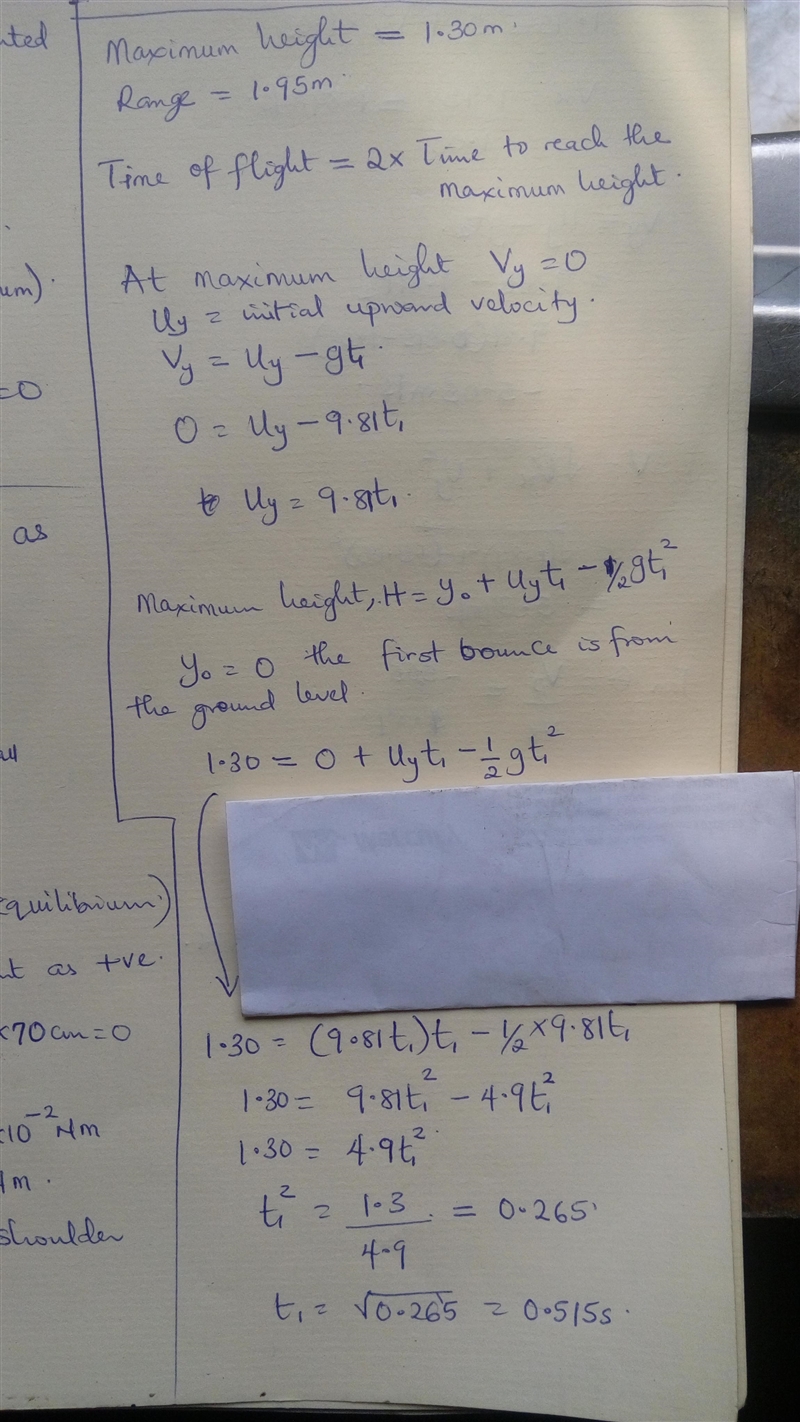 nted
um).
=0
as
all
Equilibrium)
nt as +ve.
×70cm=0
×10⁻² Nm
Nm.
shoulder
Maximum height = 1.30m.
Range = 1.95m.
Time of flight = 2× Time to reach the
maximum height.
At maximum height Vy = 0
Uy = initial upward velocity.
Vy = Uy − gt₁.
0 = Uy − 9.81t₁
Uy = 9.81t₁.
Maximum height, H = y₀ + Uyt₁ − ½gt₁²
y₀ = 0 the first bounce is from
the ground level.
1.30 = 0 + Uyt₁ − ½gt₁²
1.30 = (9.81t₁)t₁ − ½×9.81t₁
1.30 = 9.81t₁² − 4.9t₁²
1.30 = 4.9t₁².
t₁² = 1.3/4.9 = 0.265.
t₁ = √0.265 = 0.515s.